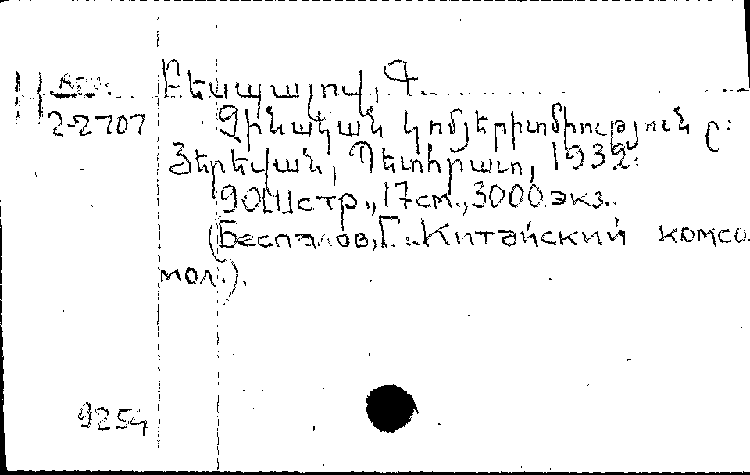 Բեսպալով, Գ.
2-2707 Չինական կոմյերիտմիությունը:
Յերեվան, Պետհրատ, 1932:
90 стр., 17 см., 3000 экз.
(Беспалов, Г. Китайский комсо
мол.).
9254